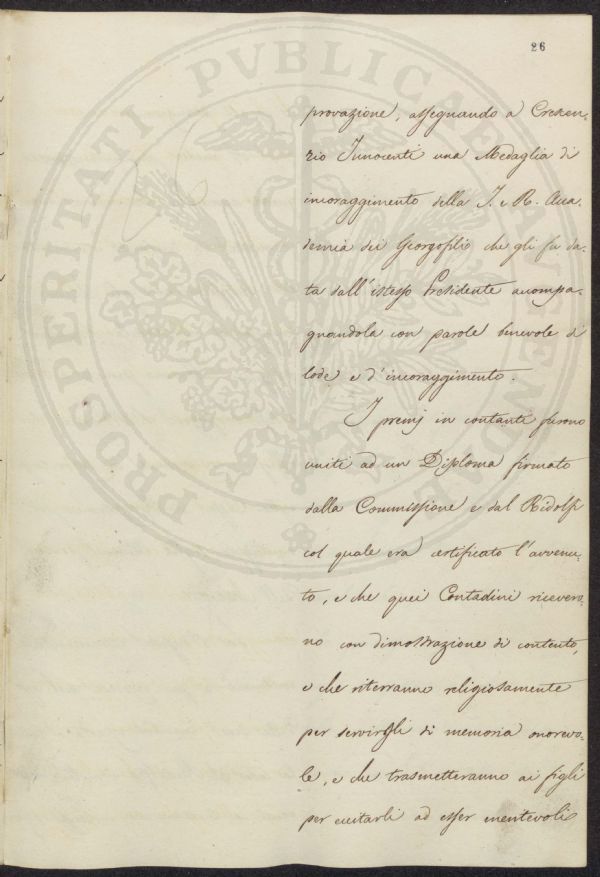 26
PROSPERITATI PUBLICAE AUGENDAE
provazione, assegnando a Crescen-
zio Innocenti una Medaglia di
incoraggimento della I. e R. Acca-
demia dei Georgofili che gli fu da-
ta dall'istesso Presidente accompa-
gnandola con parole benevole di
lode e d'incoraggimento.
I premj in contanti furono
uniti ad un Diploma firmato
dalla Commissione e dal Ridolfi
col quale era certificato l'avvenu-
to, e che quei Contadini ricevero-
no con dimostrazione di contento,
e che riterranno religiosamente
per servirgli di memoria onorevo-
le, e che trasmetteranno ai figli
per eccitarli ad esser meritevoli